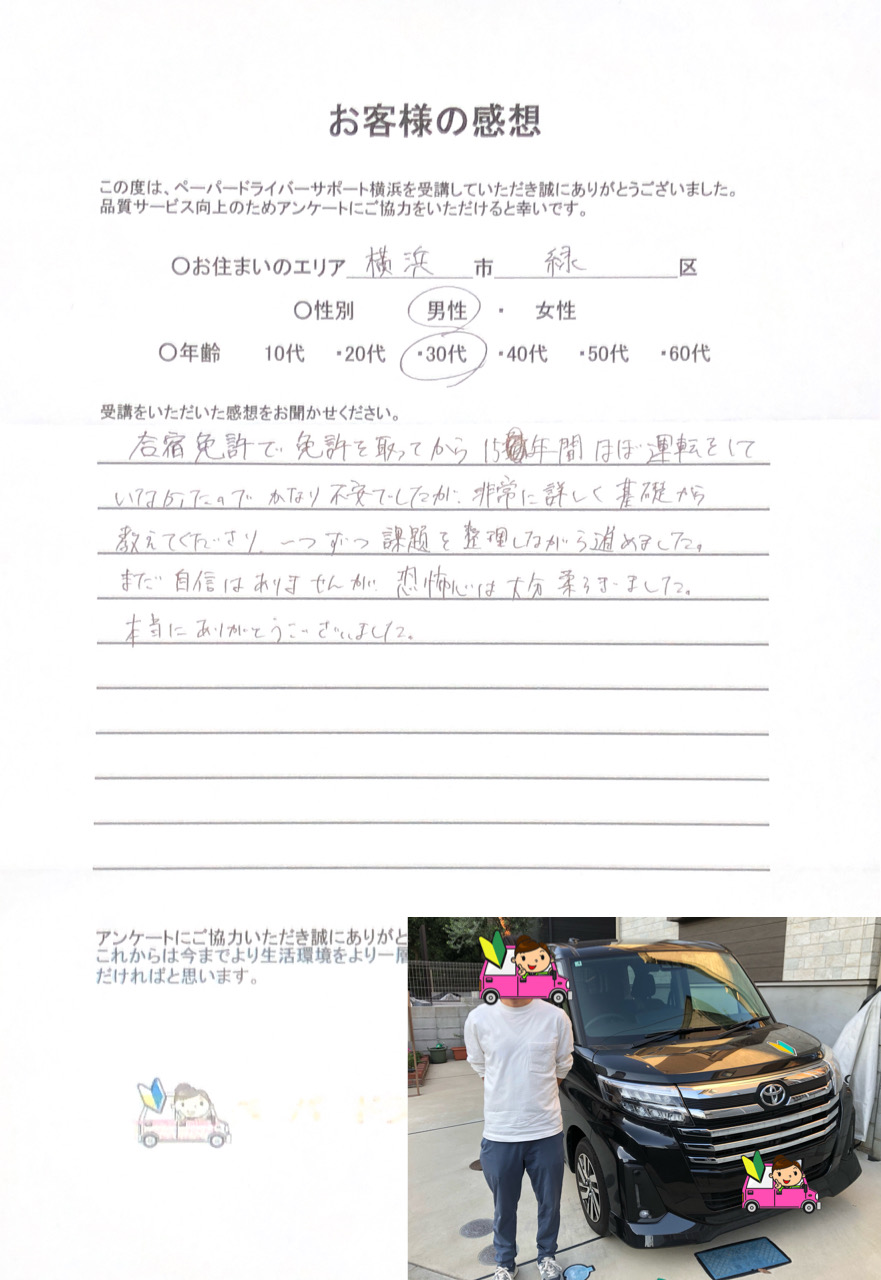 お客様の感想
この度は、ペーパードライバーサポート横浜を受講していただき誠にありがとうございました。
品質サービス向上のためアンケートにご協力をいただけると幸いです。
〇お住まいのエリア 横浜 市 緑 区
〇性別 男性 ・ 女性
〇年齢 10代 ・20代 ・30代 ・40代 ・50代 ・60代
受講をいただいた感想をお聞かせください。
合宿免許で免許を取ってから15年間ほぼ運転をして
いなかったのでかなり不安でしたが、非常に詳しく基礎から
教えてくださり、一つずつ課題を整理しながら進めました。
まだ自信はありませんが、恐怖心は大分柔らぎました。
本当にありがとうございました。
アンケートにご協力いただき誠にありがと
これからは今までより生活環境をより一層
だければと思います。